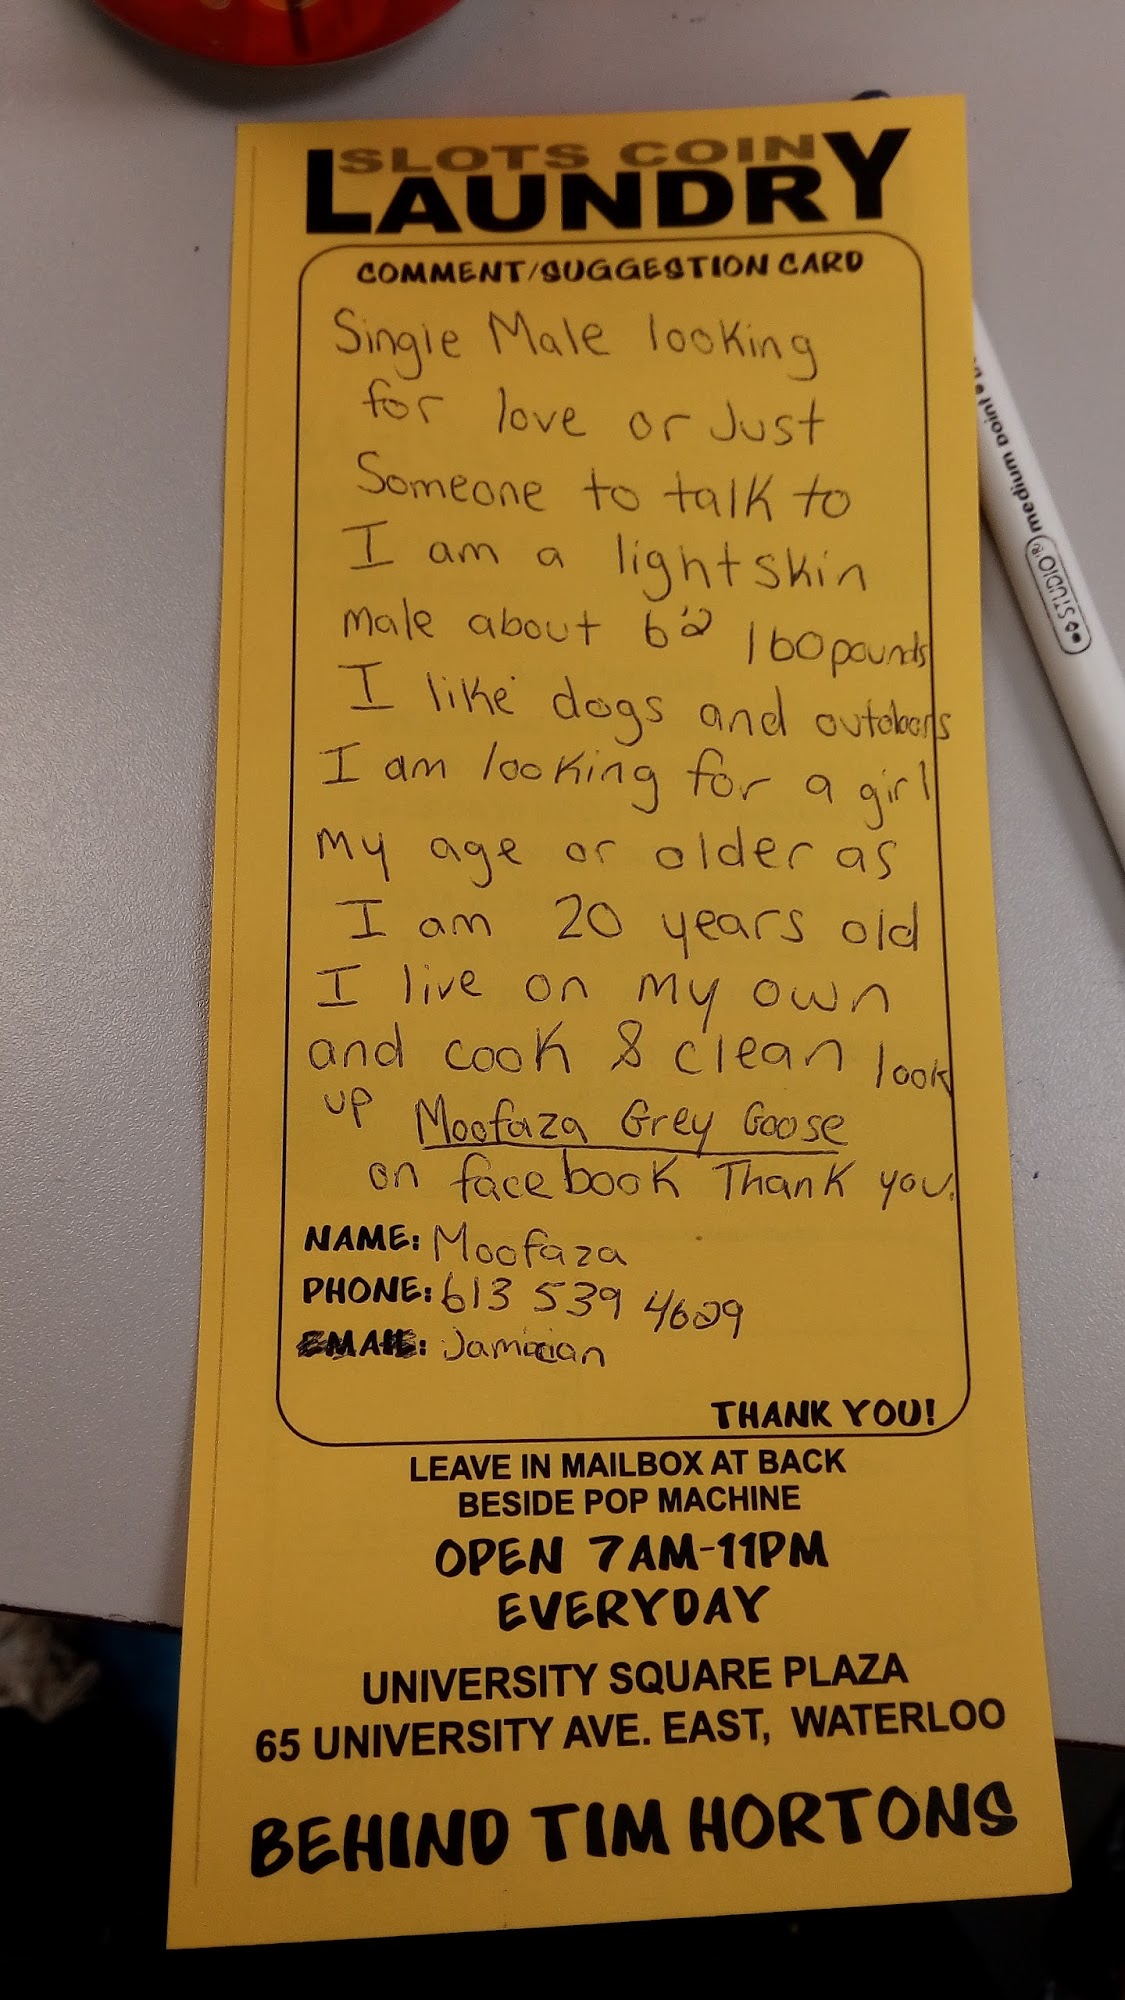 SLOTS COIN
LAUNDRY
COMMENT/SUGGESTION CARD
Single Male looking
for love or Just
Someone to talk to
I am a lightskin
male about 6'2 160 pounds
I like dogs and outdoors
I am looking for a girl
my age or older as
I am 20 years old
I live on my own
and cook & clean look
up Moofaza Grey Goose
on facebook Thank you.
NAME: Moofaza
PHONE: 613 539 4629
EMAIL: Jamician
THANK YOU!
LEAVE IN MAILBOX AT BACK
BESIDE POP MACHINE
OPEN 7AM-11PM
EVERYDAY
UNIVERSITY SQUARE PLAZA
65 UNIVERSITY AVE. EAST, WATERLOO
BEHIND TIM HORTONS
STUDIO medium point